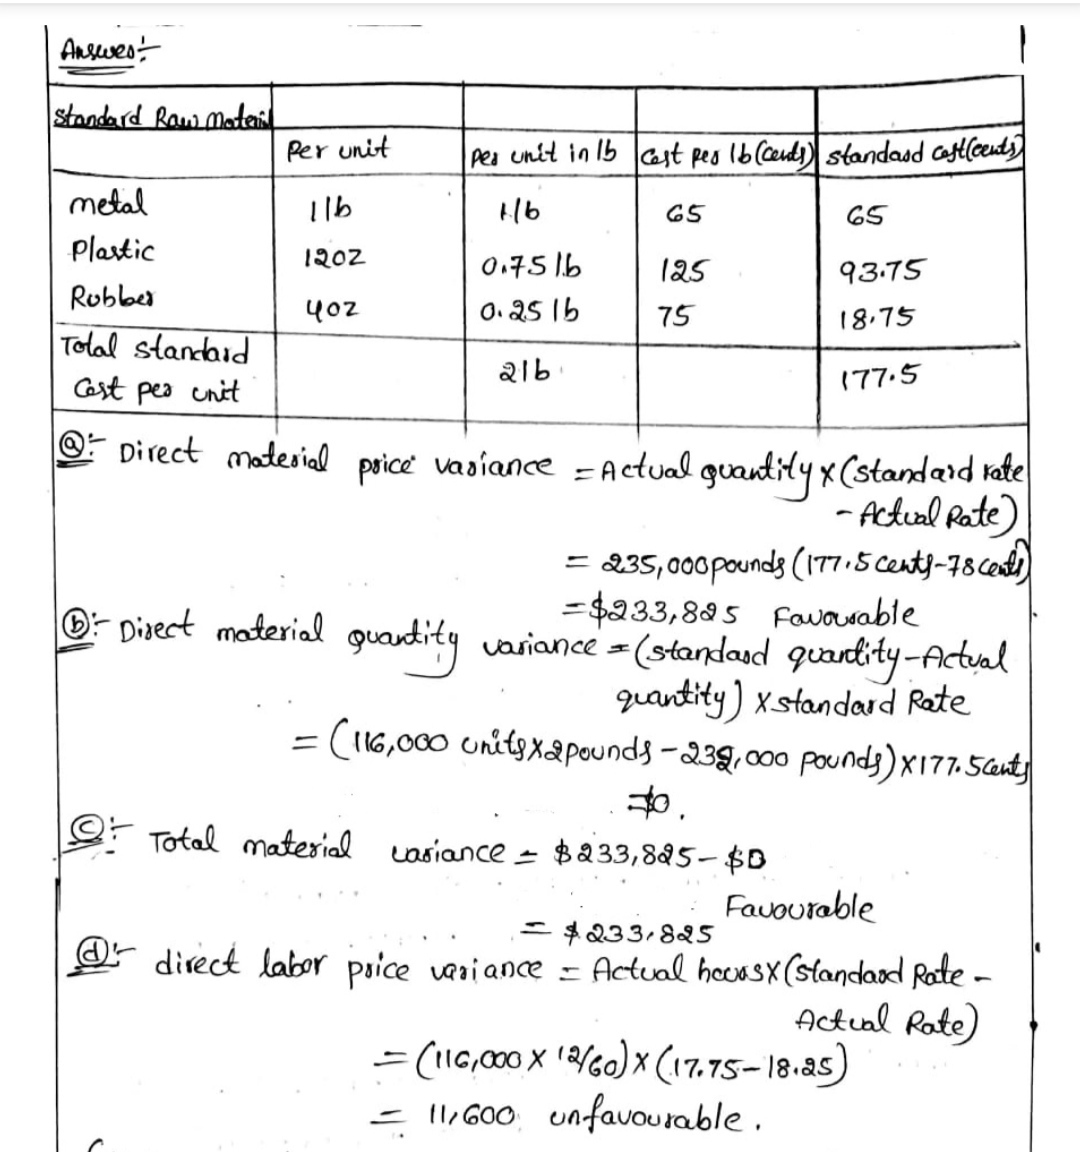 Answer:-
Standard Raw Material
Per unit per unit in lb Cost per lb (cents) standard cost (cents)
metal 1 lb 1 lb 65 65
Plastic 12oz 0.75 lb 125 93.75
Rubber 4oz 0.25 lb 75 18.75
Total standard
Cost per unit 2 lb 177.5
(a):- Direct material price variance = Actual quantity x (standard rate
- Actual Rate)
= 235,000 pounds (177.5 cents - 78 cents)
= $233,825 Favourable
(b):- Direct material quantity variance = (standard quantity - Actual
quantity) x standard Rate
= (116,000 units x 2 pounds - 232,000 pounds) x 177.5 cents
= $0.
(c):- Total material variance = $233,825 - $0
Favourable
= $233,825
(d):- direct labor price variance = Actual hours x (standard Rate -
Actual Rate)
= (116,000 x 12/60) x (17.75 - 18.25)
= 11,600 unfavourable.